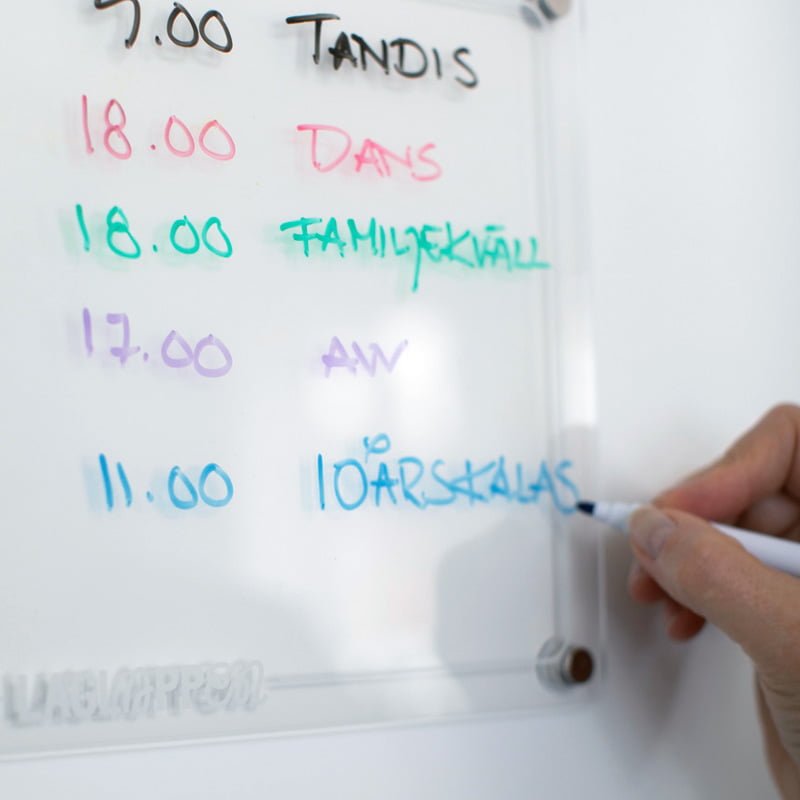 7.00 TANDIS
18.00 DANS
18.00 FAMILJEKVÄLL
17.00 AW
11.00 10ÅRSKALAS